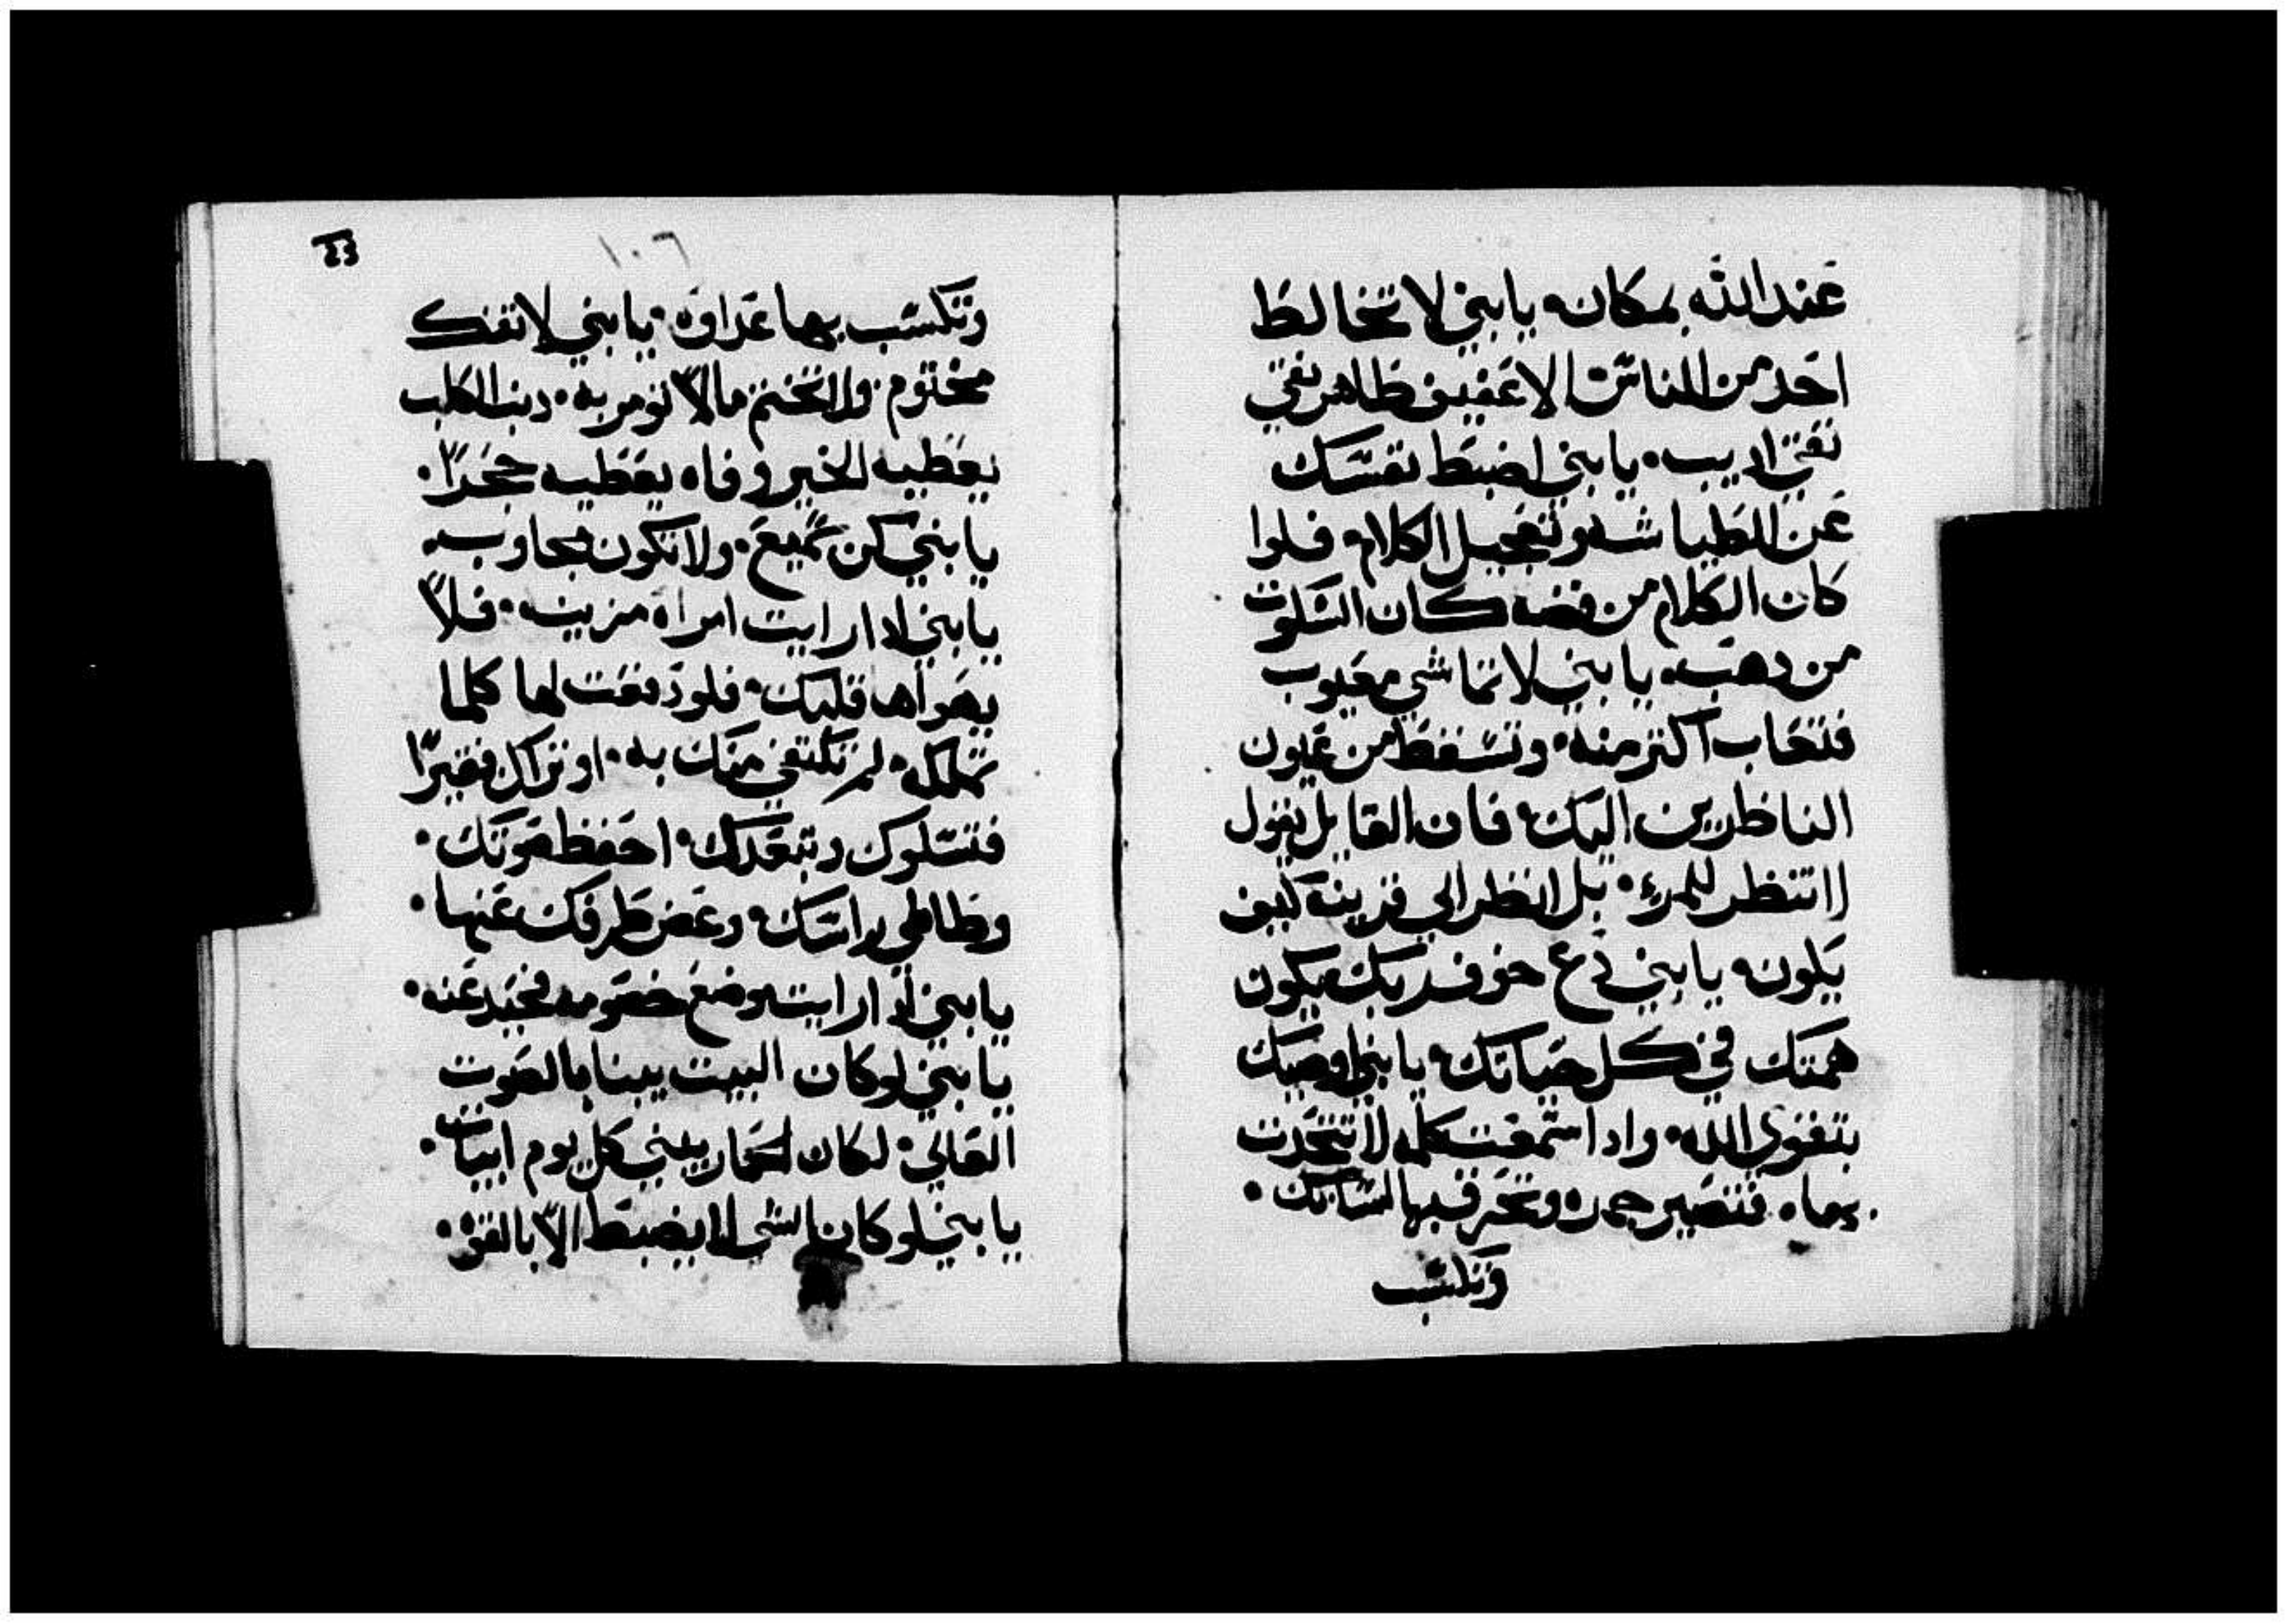 عند الله بمكانه يا بني لا تخالط
احد من الناس الا عفيف طاهر نقي
نقي اديب. يا بني اضبط نفسك
عن الطياشه وتعجيل الكلام. فلوا
كان الكلام من فضه كان السكوت
من دهب. يا بني لا تماشي معيوب
فتعاب اكتر منه. وتسقط من عيون
الناظرين اليك. فان القايل يقول
لا تنظر للمرء. بل انظر الي قرينة كيف
يكون. يا بني دع خوف ربك يكون
همتك في كل حياتك. يا بني اوصيك
بتقوي الله. وادا استمعت كلمه لا تتحدت
بها. فتصير جمره وتحرق بها لسانك.
وتكسب
٤٣
١٠٦
وتكسب بها عداوه. يا بني لا تفك
مختوم. ولا تختم مالا تومر به. دنب الكلب
يعطيه الخبز وفاه يعطيه حجرا.
يا بني كن سميع. ولا تكون مجاوب.
يا بني ادا رايت امراه مزينه. فلا
يهواها قلبك. فلو دفعت لها كلما
تملكه. لم تكتفي منك به. او تراك فقيرا
فتسلوك وتبعدك. احفظ صوتك.
وطاطي براسك. وغض طرفك عنها.
يا بني ادا رايت موضع خصومه فحيد عنه.
يا بني لو كان البيت يبنا بالصوت
العالي. لكان الحمار يبني كل يوم ابيات.
يا بني لو كان الشي لا يضبط الا بالقوه.